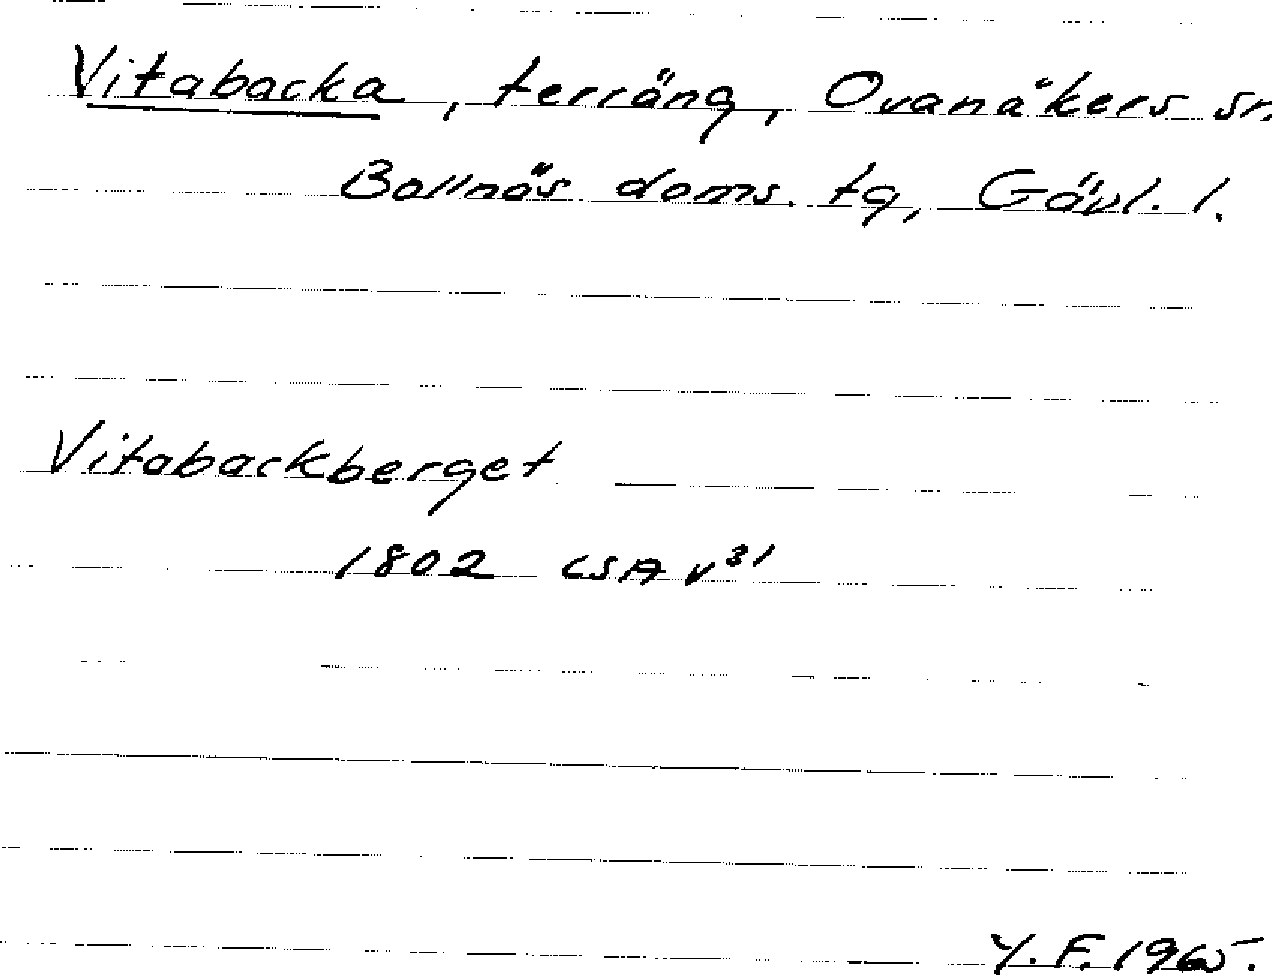 Vitabacka, terräng, Ovanåkers sn
Bollnäs doms. tg, Gävl. l.
Vitabackberget
1802 LSA v³¹
Y. F. 1965.